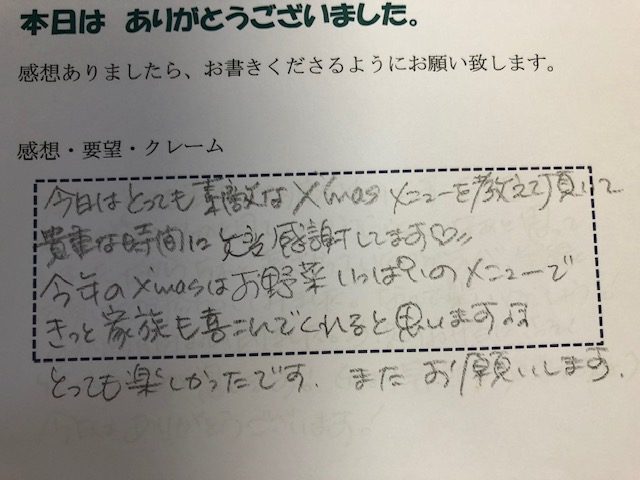 本日は ありがとうございました。
感想ありましたら、お書きくださるようにお願い致します。
感想・要望・クレーム
今日はとっても素敵なX'masメニューを教えて頂いて
貴重な時間に 感謝してます♡〃
今年のX'masはお野菜いっぱいのメニューで
きっと家族も喜こんでくれると思います
とっても楽しかったです. また お願いします.